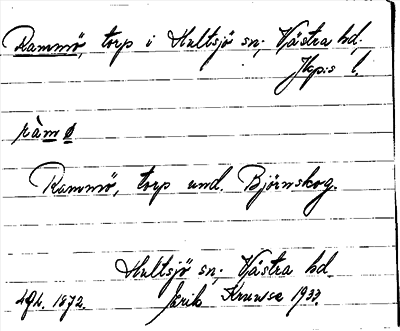 Rammö, torp i Hultsjö sn; Västra hd,
Jkp:s l.
ràmø
Rammö, torp und. Björnskog.
Hultsjö sn; Västra hd.
1872. Erik Kruuse 1933.